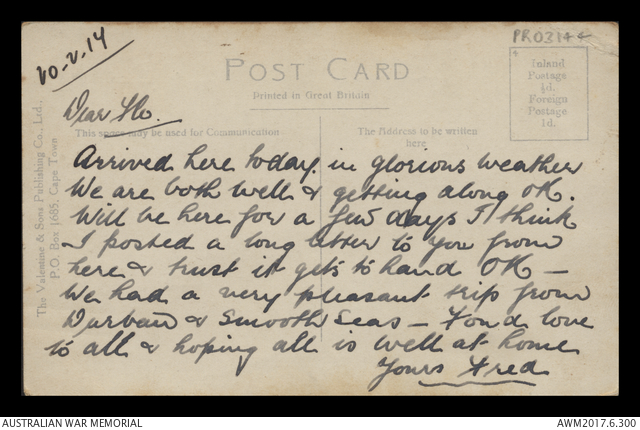 20-2-14
PRO3144
POST CARD
Printed in Great Britain
Inland
Postage
½d.
Foreign
Postage
1d.
Dear Flo.
This space may be used for Communication
The Address to be written
here
The Valentine & Sons Publishing Co., Ltd.,
P.O. Box 1685, Cape Town
Arrived here today in glorious weather
We are both well & getting along OK.
Will be here for a few days I think
I posted a long letter to you from
here & trust it gets to hand OK –
We had a very pleasant trip from
Durban & smooth seas – Fond love
to all & hoping all is well at home
Yours Fred
AUSTRALIAN WAR MEMORIAL
AWM2017.6.300